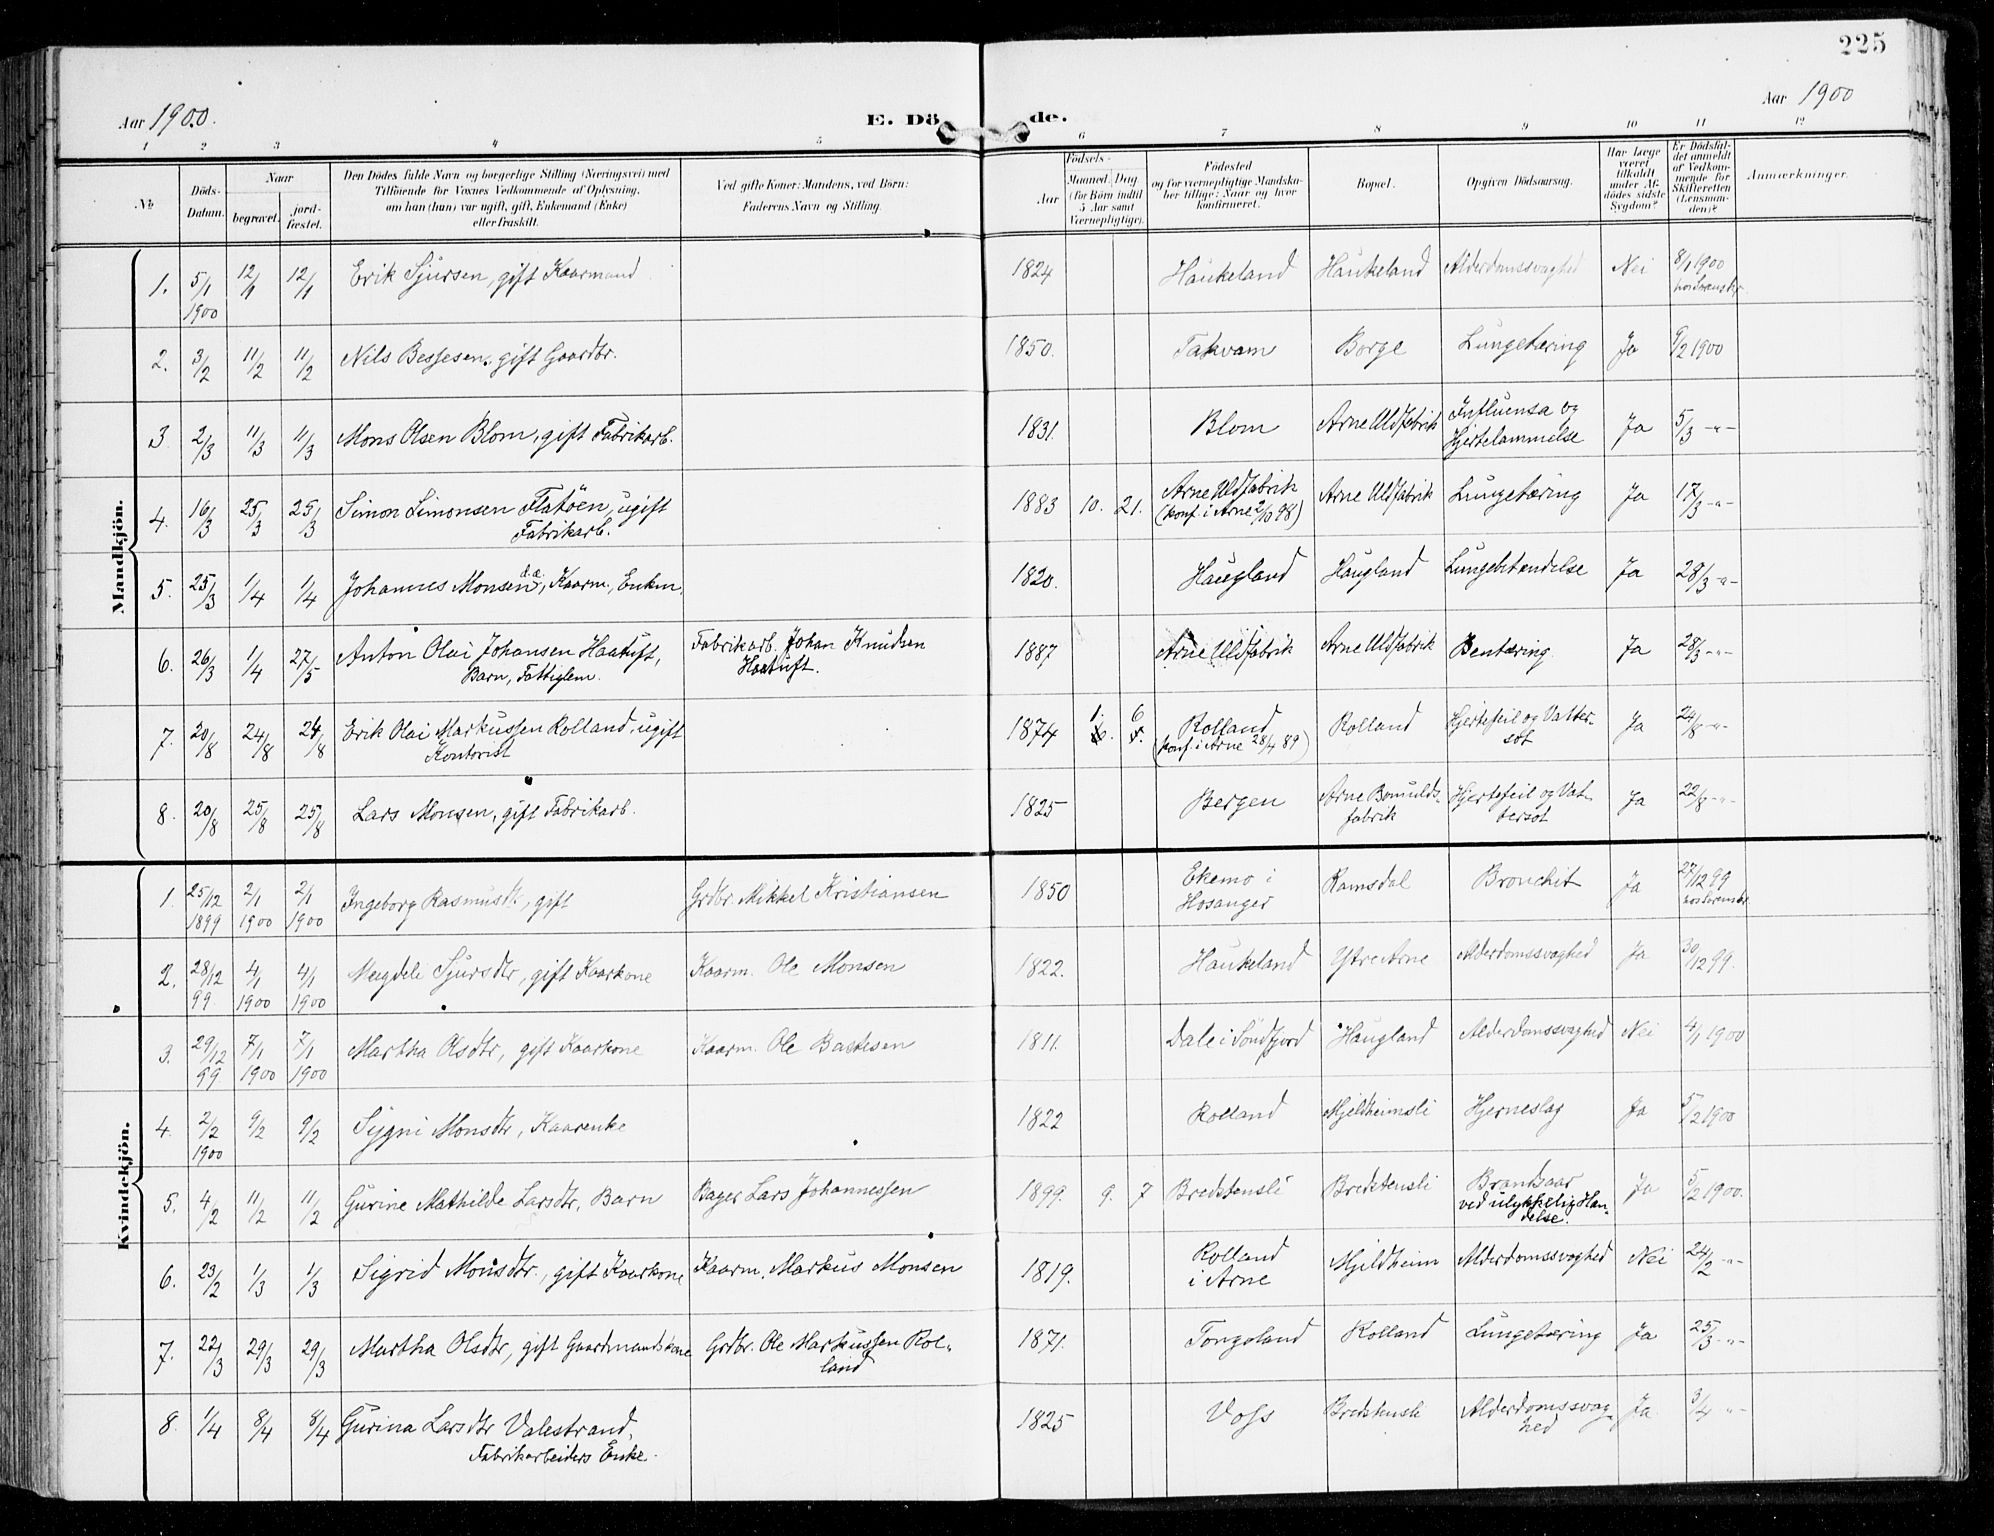 225
Aar 1900. E. Dö de. Aar 1900
1 2 3 4 5 6 7 8 9 10 11 12
No
Döds-Datum.
Naar
begravet.
jord-fæstet.
Den Dödes fulde Navn og borgerlige Stilling (Næringsvei) med
Tilföiende for Voxnes Vedkommende af Oplysning,
om han (hun) var ugift, gift, Enkemand (Enke)
eller fraskilt.
Ved gifte Koner: Mandens, ved Börn:
Faderens Navn og Stilling.
Födsels-
Aar
Maaned. Dag
(for Börn indtil
5 Aar samt
Værnepligtige).
Födested
og for værnepligtige Mandska-
ber tillige: Naar og hvor
konfirmeret.
Bopæl.
Opgiven Dödsaarsag.
Har Læge
været
tilkaldt
under Af-
dödes sidste
Sygdom?
Er Dödsfal-
det anmeldt
af Vedkom-
mende for
Skifteretten
(Lensman-
den)?
Anmærkninger.
Mandkjön.
1. 5/1 1900 12/1 12/1 Erik Sjursen, gift Kaarmand 1824 Haukeland Haukeland Alderdomssvaghed Nei 8/1 1900
2. 3/2 11/2 11/2 Nils Bessesen, gift Gaardbr. 1850. Takvam Borge Lungetæring Ja 9/2 1900
3 2/3 11/3 11/3 Mons Olsen Blom, gift Fabrikarb. 1831. Blom Arne Uldfabrik Influensa og
Hjertelammelse Ja 5/3 -"-
4. 16/3 25/3 25/3 Simon Simonsen Flatöen, ugift
Fabrikarb. 1883 10. 21. Arne Uldfabrik
(konf. i Arne 2/10 98) Arne Uldfabrik Lungetæring Ja 17/3 -"-
5. 25/3 1/4 1/4 Johannes Monsen d.æ., Kaarm., Enkm. 1820. Haugland Haugland Lungebetændelse Ja 28/3 -"-
6. 26/3 1/4 27/5 Anton Olai Johansen Haatuft,
Barn, Fattiglem. Fabrikarb. Johan Knudsen
Haatuft. 1887 Arne Uldfabrik Arne Uldfabrik Bentæring Ja 28/3 -"-
7. 20/8 24/8 24/8 Erik Olai Markussen Rolland, ugift
Kontorist 1874 1. 6 Rolland
(konf. i Arne 28/4 89) Rolland Hjertefeil og Vatter-
sot Ja 24/8 -"-
8. 20/8 25/8 25/8 Lars Monsen, gift Fabrikarb. 1825 Bergen Arne Bomulds-
fabrik Hjertefeil og Vat-
tersot Ja 22/8 -"-
Kvindekjön.
1. 25/12 1899 2/1 1900 2/1 1900 Ingeborg Rasmusdt., gift Grdbr. Mikkel Kristiansen 1850 Ekemo i
Hosanger Ramsdal Bronchit Ja 27/12 99
2. 28/12 99 4/1 1900 4/1 1900 Magdeli Sjursdtr, gift Kaarkone Kaarm. Ole Monsen 1822. Haukeland Ytre Arne Alderdomssvaghed Ja 30/12 99.
3. 29/12 99 7/1 1900 7/1 1900 Martha Olsdtr, gift Kaarkone Kaarm. Ole Baktesen 1811. Dale i Söndfjord Haugland Alderdomssvaghed Nei 4/1 1900
4. 2/2 1900 9/2 9/2 Sygni Monsdtr, Kaarenke 1822 Rolland Mjeldheimsli Hjerneslag Ja 5/2 1900
5. 4/2 11/2 11/2 Gurine Mathilde Larsdtr, Barn Bager Lars Johannessen 1899. 9. 7 Bredstensli Bredstensli Brandsaar
ved ulykkelig Hæn-
delse. Ja 5/2 1900.
6. 23/2 1/3 1/3 Sigrid Monsdtr., gift Kaarkone Kaarm. Markus Monsen 1819. Rolland
i Arne Mjeldheim Alderdomssvaghed Nei 24/2 -"-
7. 22/3 29/3 29/3 Martha Olsdtr, gift Gaardmandskone Grdbr. Ole Markussen Rol-
land 1871. Tongoland Rolland Lungetæring Ja 25/3 -"-
8. 1/4 8/4 8/4 Gurina Larsdtr Valestrand,
Fabrikarbeiders Enke. 1825 Voss Bredstensli Alderdomssvag-
hed Ja. 3/4 "-